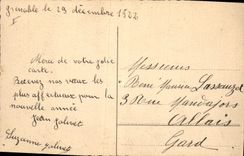 Grenoble le 29 décembre 1922
Merci de votre jolie
carte.
Recevez nos vœux les
plus affectueux pour la
nouvelle année
Jean
Suzanne
Messieurs
René
3 Rue Mandajors
Allais
Gard